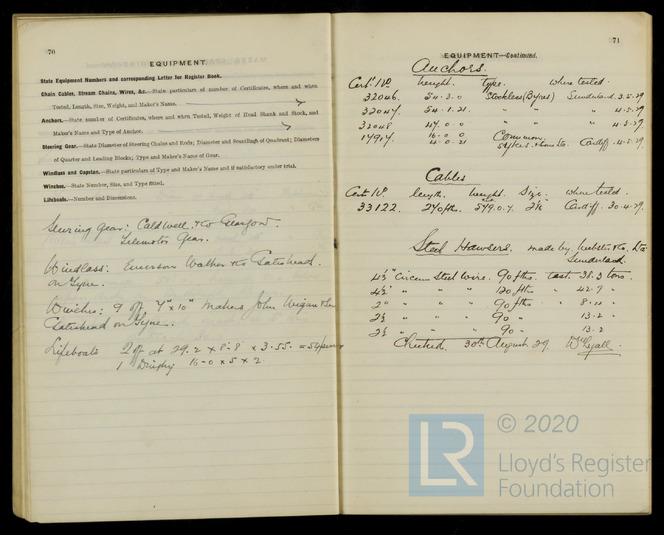 70
EQUIPMENT.
State Equipment Numbers and corresponding Letter for Register Book.
Chain Cables, Stream Chains, Wires, &c.—State particulars of number of Certificates, where and when
Tested, Length, Size, Weight, and Maker's Name.
Anchors.—State number of Certificates, where and when Tested, Weight of Head Shank and Stock, and
Maker's Name and Type of Anchor.
Steering Gear.—State Diameter of Steering Chains and Rods; Diameter and Scantlings of Quadrant; Diameters
of Quarter and Leading Blocks; Type and Maker's Name of Gear.
Windlass and Capstan.—State particulars of Type and Maker's Name and if satisfactory under trial.
Winches.—State Number, Size, and Type fitted.
Lifeboats.—Number and Dimensions.
Steering gear: Caldwell & Co Glasgow.
Telemotor Gear.
Windlass: Emerson Walker & Co Gateshead
on Tyne.
Winches: 9 off 7" x 10" makers John Wigan &
Gateshead on Tyne.
Lifeboats 2 off at 29.2 x 8.8 x 3.55. = 54
1 Dinghy 16-0 x 5 x 2
71
EQUIPMENT—Continued.
Anchors.
Cert. No weight. Type. where tested.
32046. 54.3.0 Stockless (Byers) Sunderland. 3.5.29
32047. 54.1.21. " " " 4.5.29.
32048 47.0.0 " " " 4.5.29.
17917. 16.0.0 Common.
4.0.21 Cardiff. 4.5.29.
Cables
Cert No length. weight. Size. where tested.
33122. 270 fths. 579.0.7. Cardiff. 30.4.29.
Steel Hawsers. made by Webster & Co. Ltd
Sunderland.
4½" Circum Steel Wire. 90 fths. test tons.
" " " 120 fths " 42.9 "
" " " 90 fths "
2½ " " " 90 " 13.2 "
2½ " " " 90 " 13.2
Checked. 30th August 29. Wm Lyall.
LR
© 2020
Lloyd's Register
Foundation